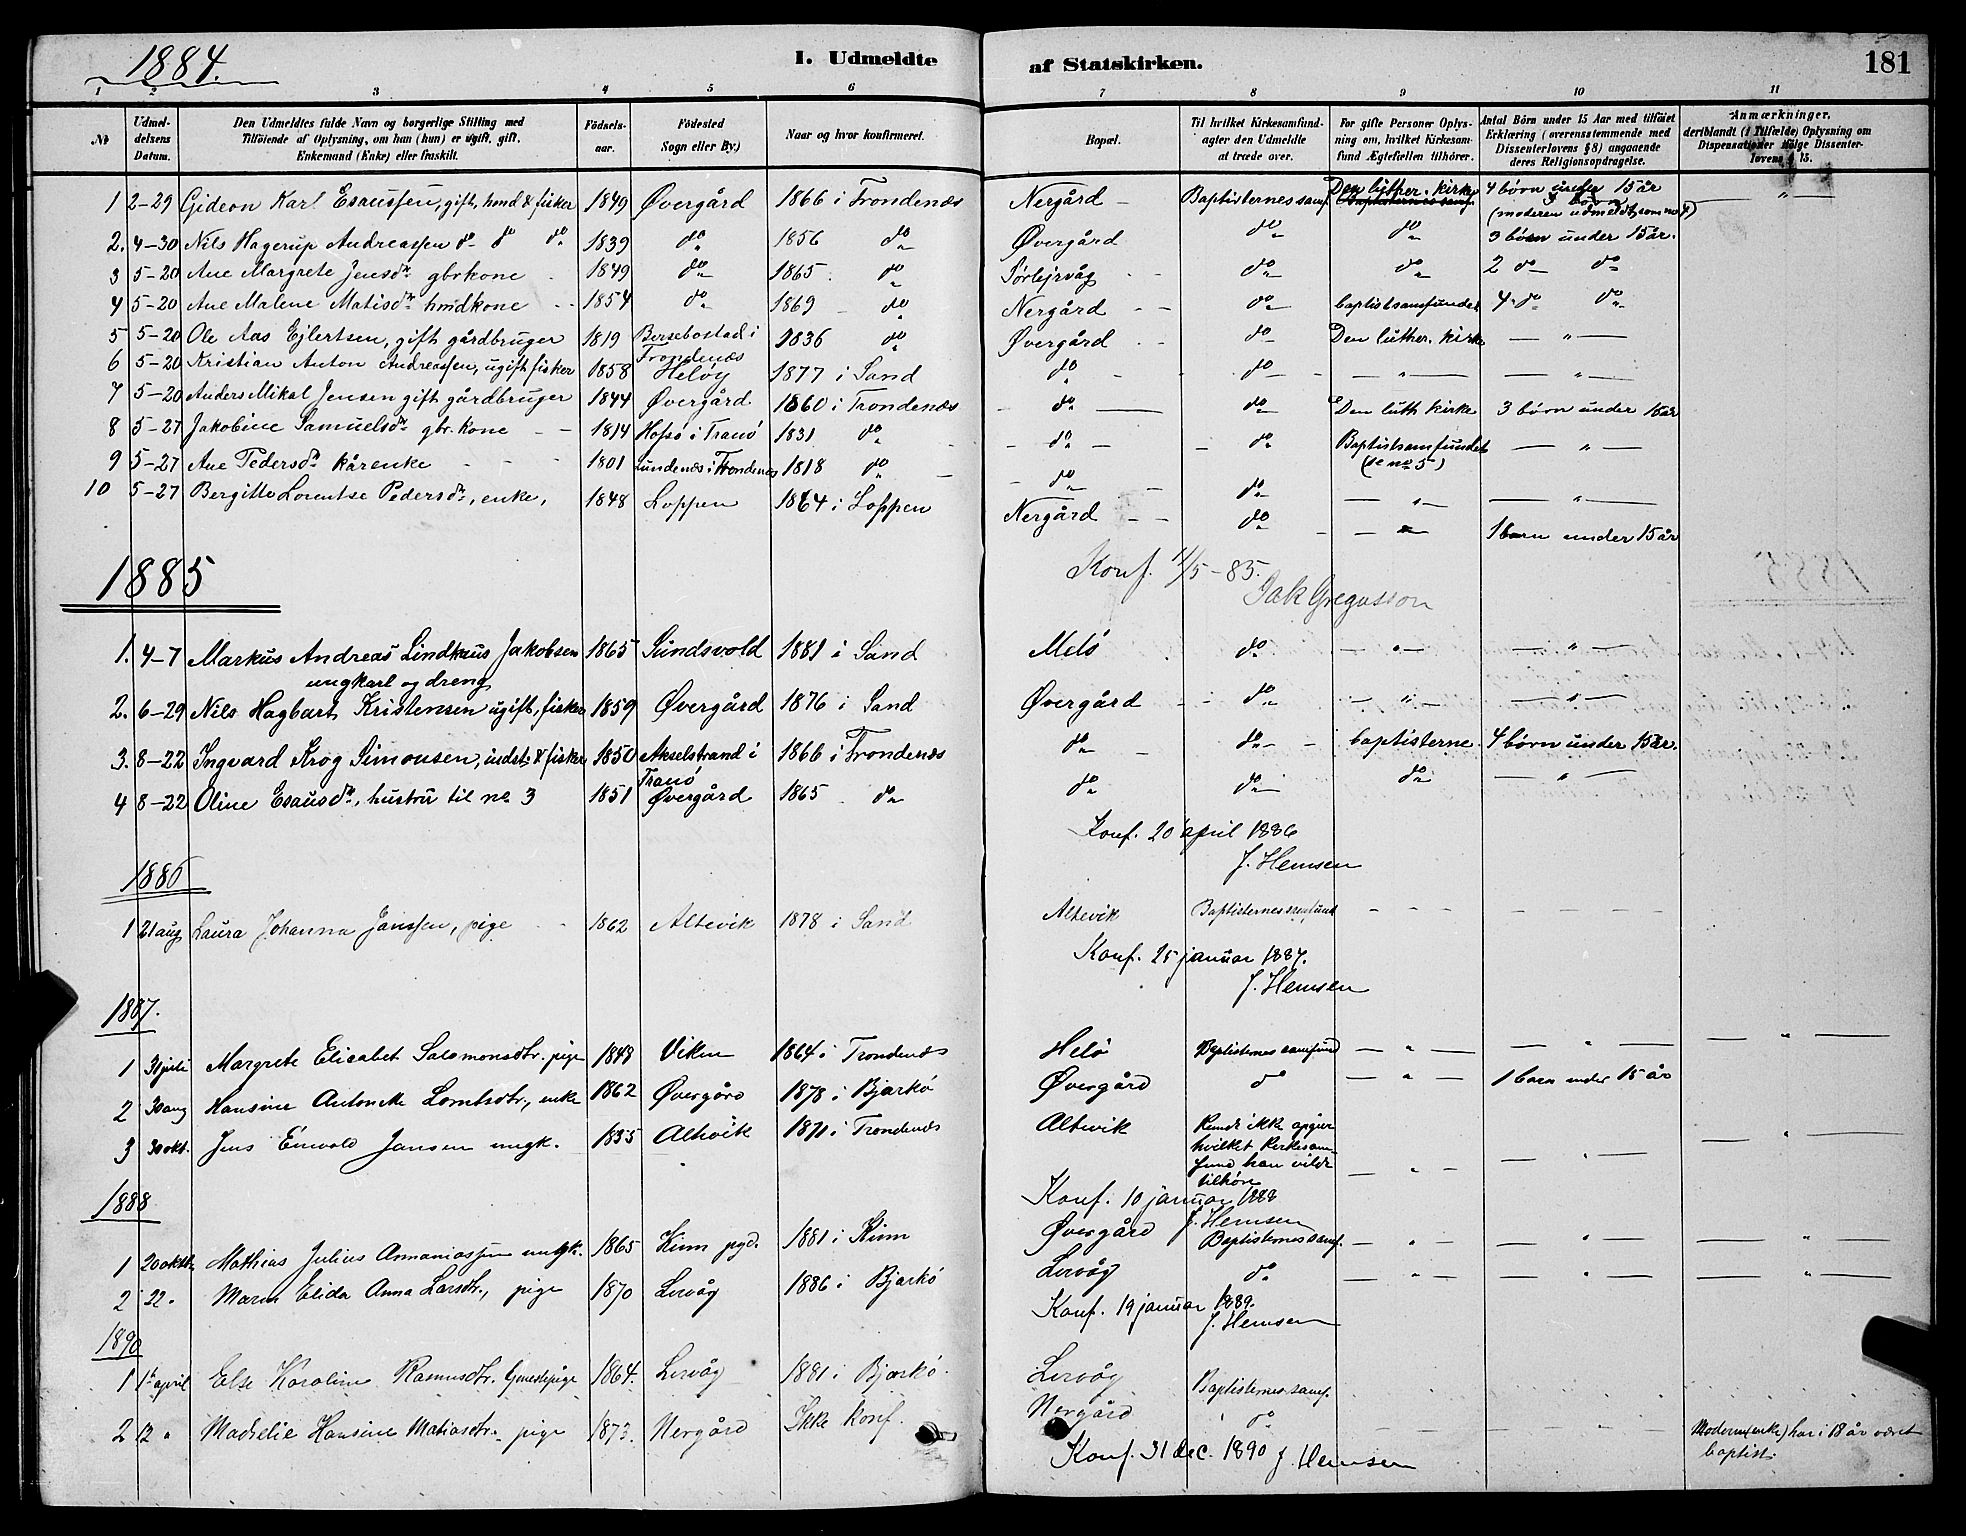 1884.
I. Udmeldte af Statskirken. 181
1 2 3 4 5 6 7 8 9 10 11
№ | Udmeldelsens Datum. | Den Udmeldtes fulde Navn og borgerlige Stilling med Tilføiende af Oplysning, om han (hun) er ugift, gift, Enkemand (Enke) eller fraskilt. | Fødselsaar. | Fødested Sogn eller By.) | Naar og hvor konfirmeret. | Bopæl. | Til hvilket Kirkesamfund agter den Udmeldte at træde over. | For gifte Personer Oplysning om, hvilket Kirkesamfund Ægtefællen tilhører. | Antal Børn under 15 Aar med tilføiet Erklæring (overensstemmende med Dissenterlovens §8) angaaende deres Religionsopdragelse. | Anmærkninger, deriblandt (i Tilfælde) Oplysning om Dispensationer ifølge Dissenterlovens § 15.
1 2-29 Gideon Karl Esaussen, gift, hmd & fisker 1849 Øvergård 1866 i Trondenæs Nergård - Baptisternes samf. Den luther. kirke 4 børn under 15 år (moderen udmeldt som no 4) — " —
2. 4-30 Nils Hagerup Andreassen do do do 1839 do 1856 do Øvergård do do 3 børn under 15 år.
3 5-20 Ane Margrete Jensdr gbrkone 1849 do 1865 do Sørlejrvåg do do 2 do do
4 5-20 Ane Malene Matisdr hmdkone 1854 do 1869 do Nergård do baptistsamfundet 4 do do
5 5-20 Ole Aas Ejlertsen, gift gårdbruger 1819 Bersebostad i Trondenæs 1836 do Øvergård do Den luther. kirke — " —
6 5-20 Kristian Anton Andreassen, ugift fisker 1858 Heløy 1877 i Sand do do — " — — " —
7 5-20 Anders Mikal Jensen gift gårdbruger 1844 Øvergård 1860 i Trondenæs do do Den luth kirke 3 børn under 15 år
8 5-27 Jakobine Samuelsdr gbr. kone 1814 Hofsø i Tranø 1831 do do do Baptistsamfundet (se no 5) — " —
9 5-27 Ane Pedersdr kårenke 1801 Lundenæs i Trondenæs 1818 do do do — " — — " —
10 5-27 Bergitte Lorentse Pedersdr, enke, 1848 Loppen 1864 i Loppen Nergård do — " — 1 barn under 15 år
1885
Konf. 11/5-85.
Jak Gregusson
1. 4-7 Markus Andreas Lindkus Jakobsen ungkarl og dreng 1865 Sundsvold 1881 i Sand Melø do — " — — " —
2. 6-29 Nils Hagbart Kristensen ugift, fisker 1859 Øvergård 1876 i Sand Øvergård do — " — — " —
3. 8-22 Ingvard Krog Simonsen, indst. & fisker 1850 Akselstrand i Tranø 1866 i Trondenæs do do baptisterne 4 børn under 15 år.
4 8-22 Oline Esausdr, hustru til no 3 1851 Øvergård 1865 do do do do — " —
Konf. 20 april 1886
J. Hemsen
1886
1 21 aug Laura Johanna Janssen, pige 1862 Altevik 1878 i Sand Altevik Baptisternes samfund
Konf. 25 januar 1887.
J. Hemsen
1887.
1 31 juli Margrete Elisabet Salomonsdtr. pige 1848 Viken 1864 i Trondenæs Helø Baptisternes samfund — " — — " — " —
2 30 aug Hansine Antonette Lorntsdtr., enke 1862 Øvergård 1878 i Bjarkø Øvergård do — " — 1 barn under 15 år
3 30 okt. Jens Einvold Jansen ungk. 1855 Altevik 1871 i Trondenæs Altevik Kunde ikke opgive hvilket Kirkesamfund han vilde tilhøre — " — — " — — " —
1888
Konf. 10 januar 1888
J. Hemsen
1 20 oktb. Mathias Julius Annaniassen ungk. 1865 Kinn pgd. 1881 i Kinn Øvergård Baptisternes samf. — " — — " — — " —
2 22 " Maren Elida Anna Larsdtr., pige 1870 Lervåg 1886 i Bjarkø Lervåg do — " — — " — — " —
Konf. 19 januar 1889.
J. Hemsen
1890
1 1st april Else Karoline Rasmusdtr. pige 1864. Lervåg 1881 i Bjarkø. Lervåg Baptisternes samf.
2 12 " Hansine Matiasdtr. pige 1873. Nergård Ikke konf. Nergård do Moderen (enke) har i 18 år været baptist.
Konf. 31 dec. 1890 J. Hemsen